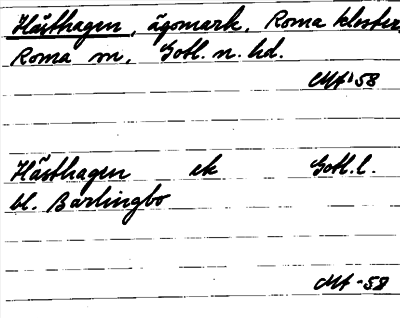 Hästhagen, ägomark, Roma kloster,
Roma sn, Gotl. n. hd.
MA -58
Hästhagen ek Gotl. l.
bl. Barlingbo
MA -58